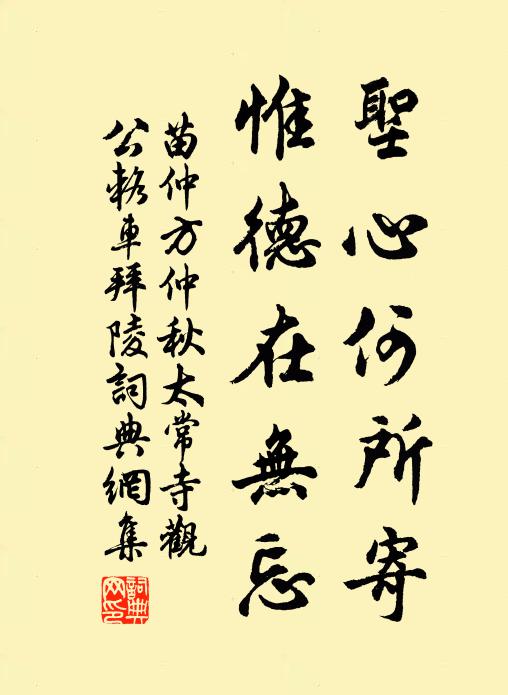 聖心何所寄
惟德在無忘
苗仲方仲秋太常寺觀
公輅車拜陵詞典網集
詞典網印